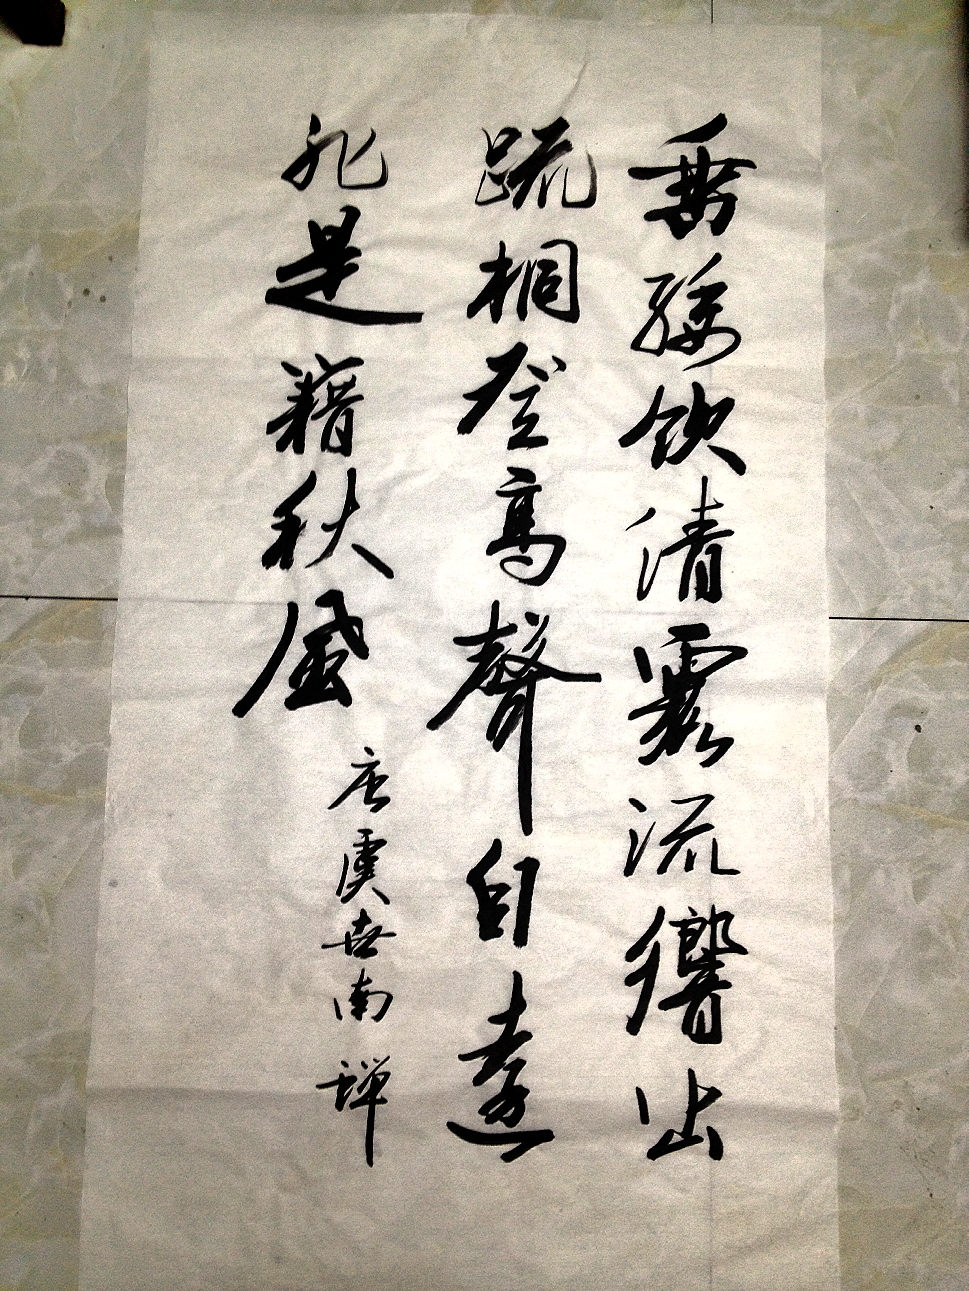 垂緌饮清露流響出
疏桐登高聲自遠
非是籍秋風
唐虞世南蝉